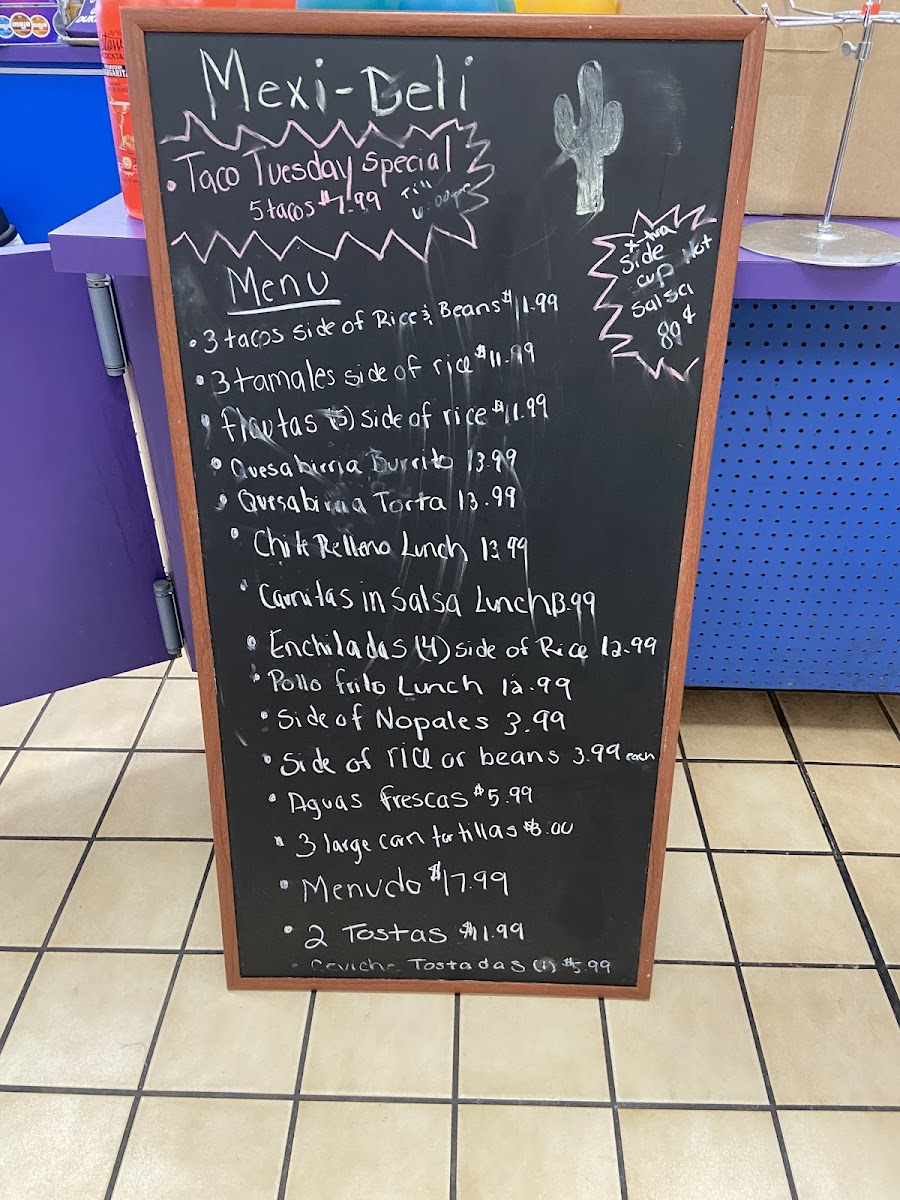 Mexi-Deli
• Taco Tuesday Special
5 tacos $7.99
Till
6:00pm
X-tra
Side
cup Hot
Salsa
89¢
Menu
• 3 tacos side of Rice & Beans $11.99
• 3 tamales side of rice $11.99
• flautas (5) side of rice $11.99
• Quesabirria Burrito 13.99
• Quesabirria Torta 13.99
• Chile Relleno Lunch 13.99
• Carnitas in Salsa Lunch 13.99
• Enchiladas (4) side of Rice 12.99
• Pollo frito Lunch 12.99
• Side of Nopales 3.99
• Side of rice or beans 3.99 each
• Aguas frescas $5.99
• 3 large corn tortillas
• Menudo $17.99
• 2 Tostas $11.99
• Ceviche Tostadas (1) $5.99